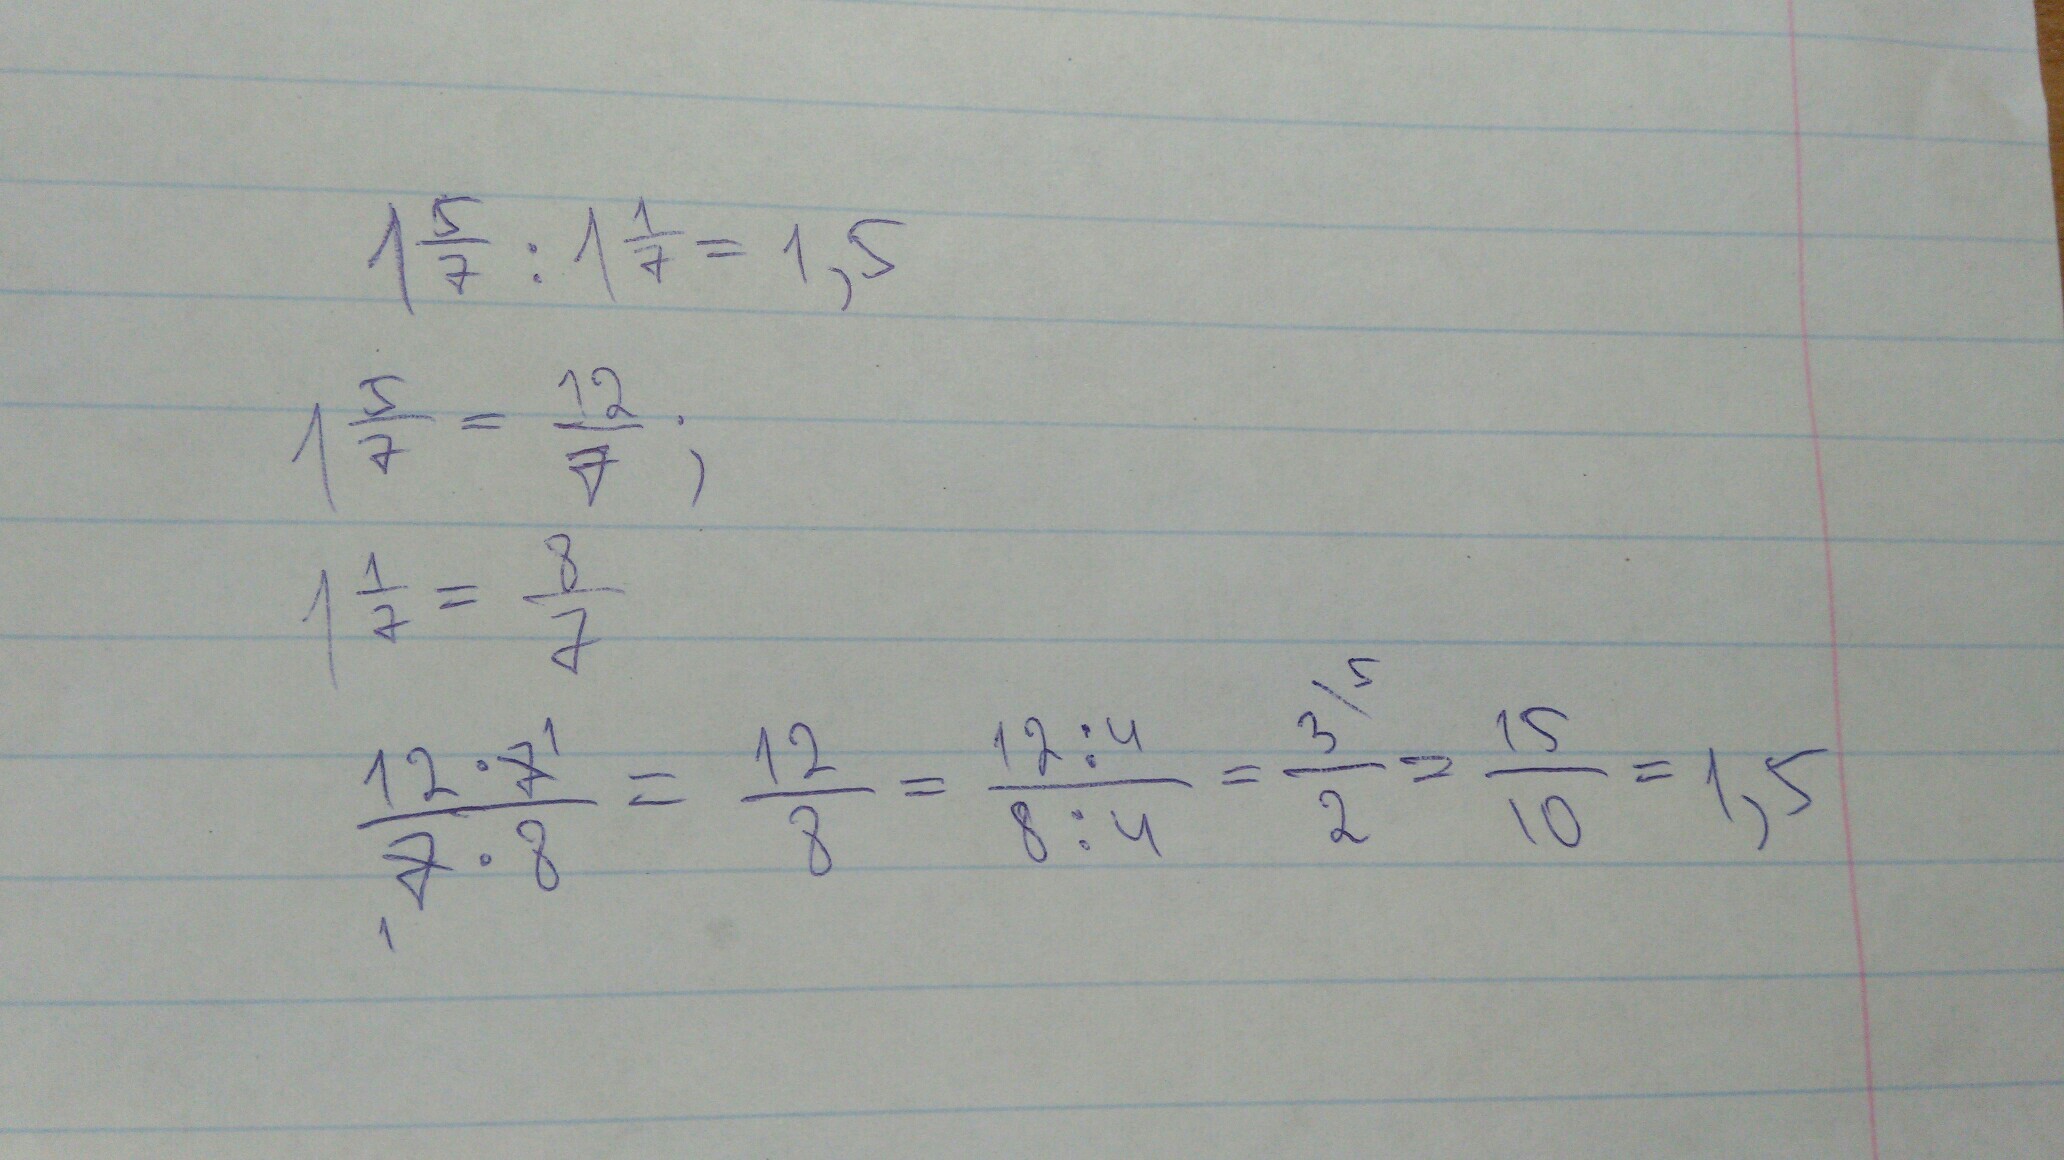 1 5/7 : 1 1/7 = 1,5
1 5/7 = 12/7 ;
1 1/7 = 8/7
12 · 7 1 / 7 1 · 8 = 12/8 = 12:4 / 8:4 = 3 \5 / 2 = 15/10 = 1,5